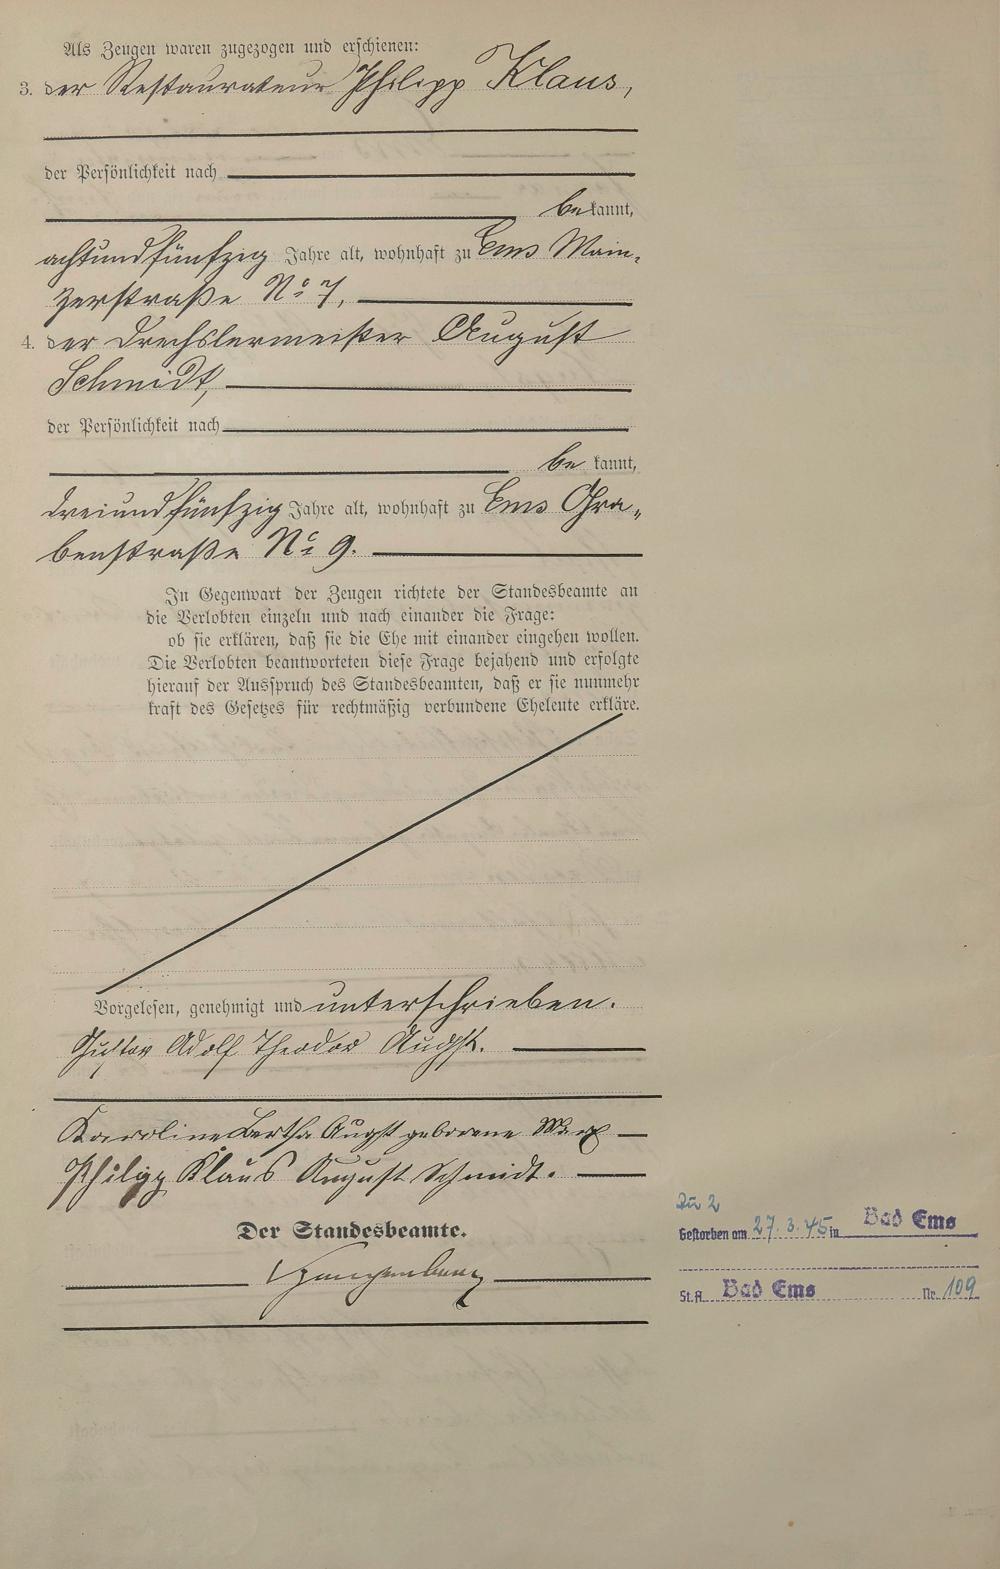 Als Zeugen waren zugezogen und erschienen:
3. der Restaurateur Philipp Klaus,
der Persönlichkeit nach
bekannt,
achtundfünfzig Jahre alt, wohnhaft zu Ems Main-
zerstraße No 7,
4. der Drechslermeister August
Schmidt,
der Persönlichkeit nach
bekannt,
dreiundfünfzig Jahre alt, wohnhaft zu Ems Gra-
benstraße No 9.
In Gegenwart der Zeugen richtete der Standesbeamte an
die Verlobten einzeln und nach einander die Frage:
ob sie erklären, daß sie die Ehe mit einander eingehen wollen.
Die Verlobten beantworteten diese Frage bejahend und erfolgte
hierauf der Ausspruch des Standesbeamten, daß er sie nunmehr
kraft des Gesetzes für rechtmäßig verbundene Eheleute erkläre.
Vorgelesen, genehmigt und unterschrieben.
Gustav Adolf Theodor Augst.
Karoline Bertha Augst geborene
Philipp Klaus August Schmidt.
Der Standesbeamte.
Zu 2
Gestorben am 27.3.45 in Bad Ems
St.A. Bad Ems Nr. 109